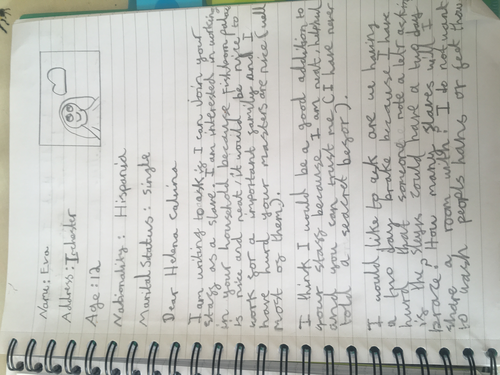 Name: Eva
Address: Ilchester
Age: 12
Nationality: Hispania
Marital Status: Single
Dear Helena Calvina
I am writing to ask if I can join your
staff as a slave. I am interested in working
in your household because fishbourn palace
is nice and neat. it would be nice to
work for a important family and I
have hurd your masters are nice (well
most of them)
I think I would be a good addition to
your staff because I am neat, helpful
and you can trust me (I have never
told a seacret befor).
I would like to ask are we having
a two day brake because I have
hurd that someone note a left asking
if the slays could have a two day
brake? How many slaves will I
share a room with? I do not want
to wash peoples hans or feet thow.